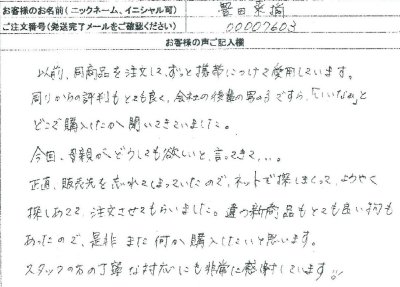 お客様のお名前(ニックネーム、イニシャル可) 豊田
ご注文番号(発送完了メールをご確認ください) 00007603
お客様の声ご記入欄
以前、同商品を注文して、ずっと携帯につけて使用しています。
周りからの評判もとても良く、会社の後輩の男の子ですら、「いいなぁ」と
どこで購入したか聞いてきていました。
今回、母親がどうしても欲しいと言ってきて...。
正直、販売先を忘れてしまっていたので、ネットで探しまくって、ようやく
探しあてて、注文させてもらいました。違う新商品もとても良い物も
あったので、是非また何か購入したいと思います。
スタッフの方の丁寧な対応にも非常に感謝しています!!